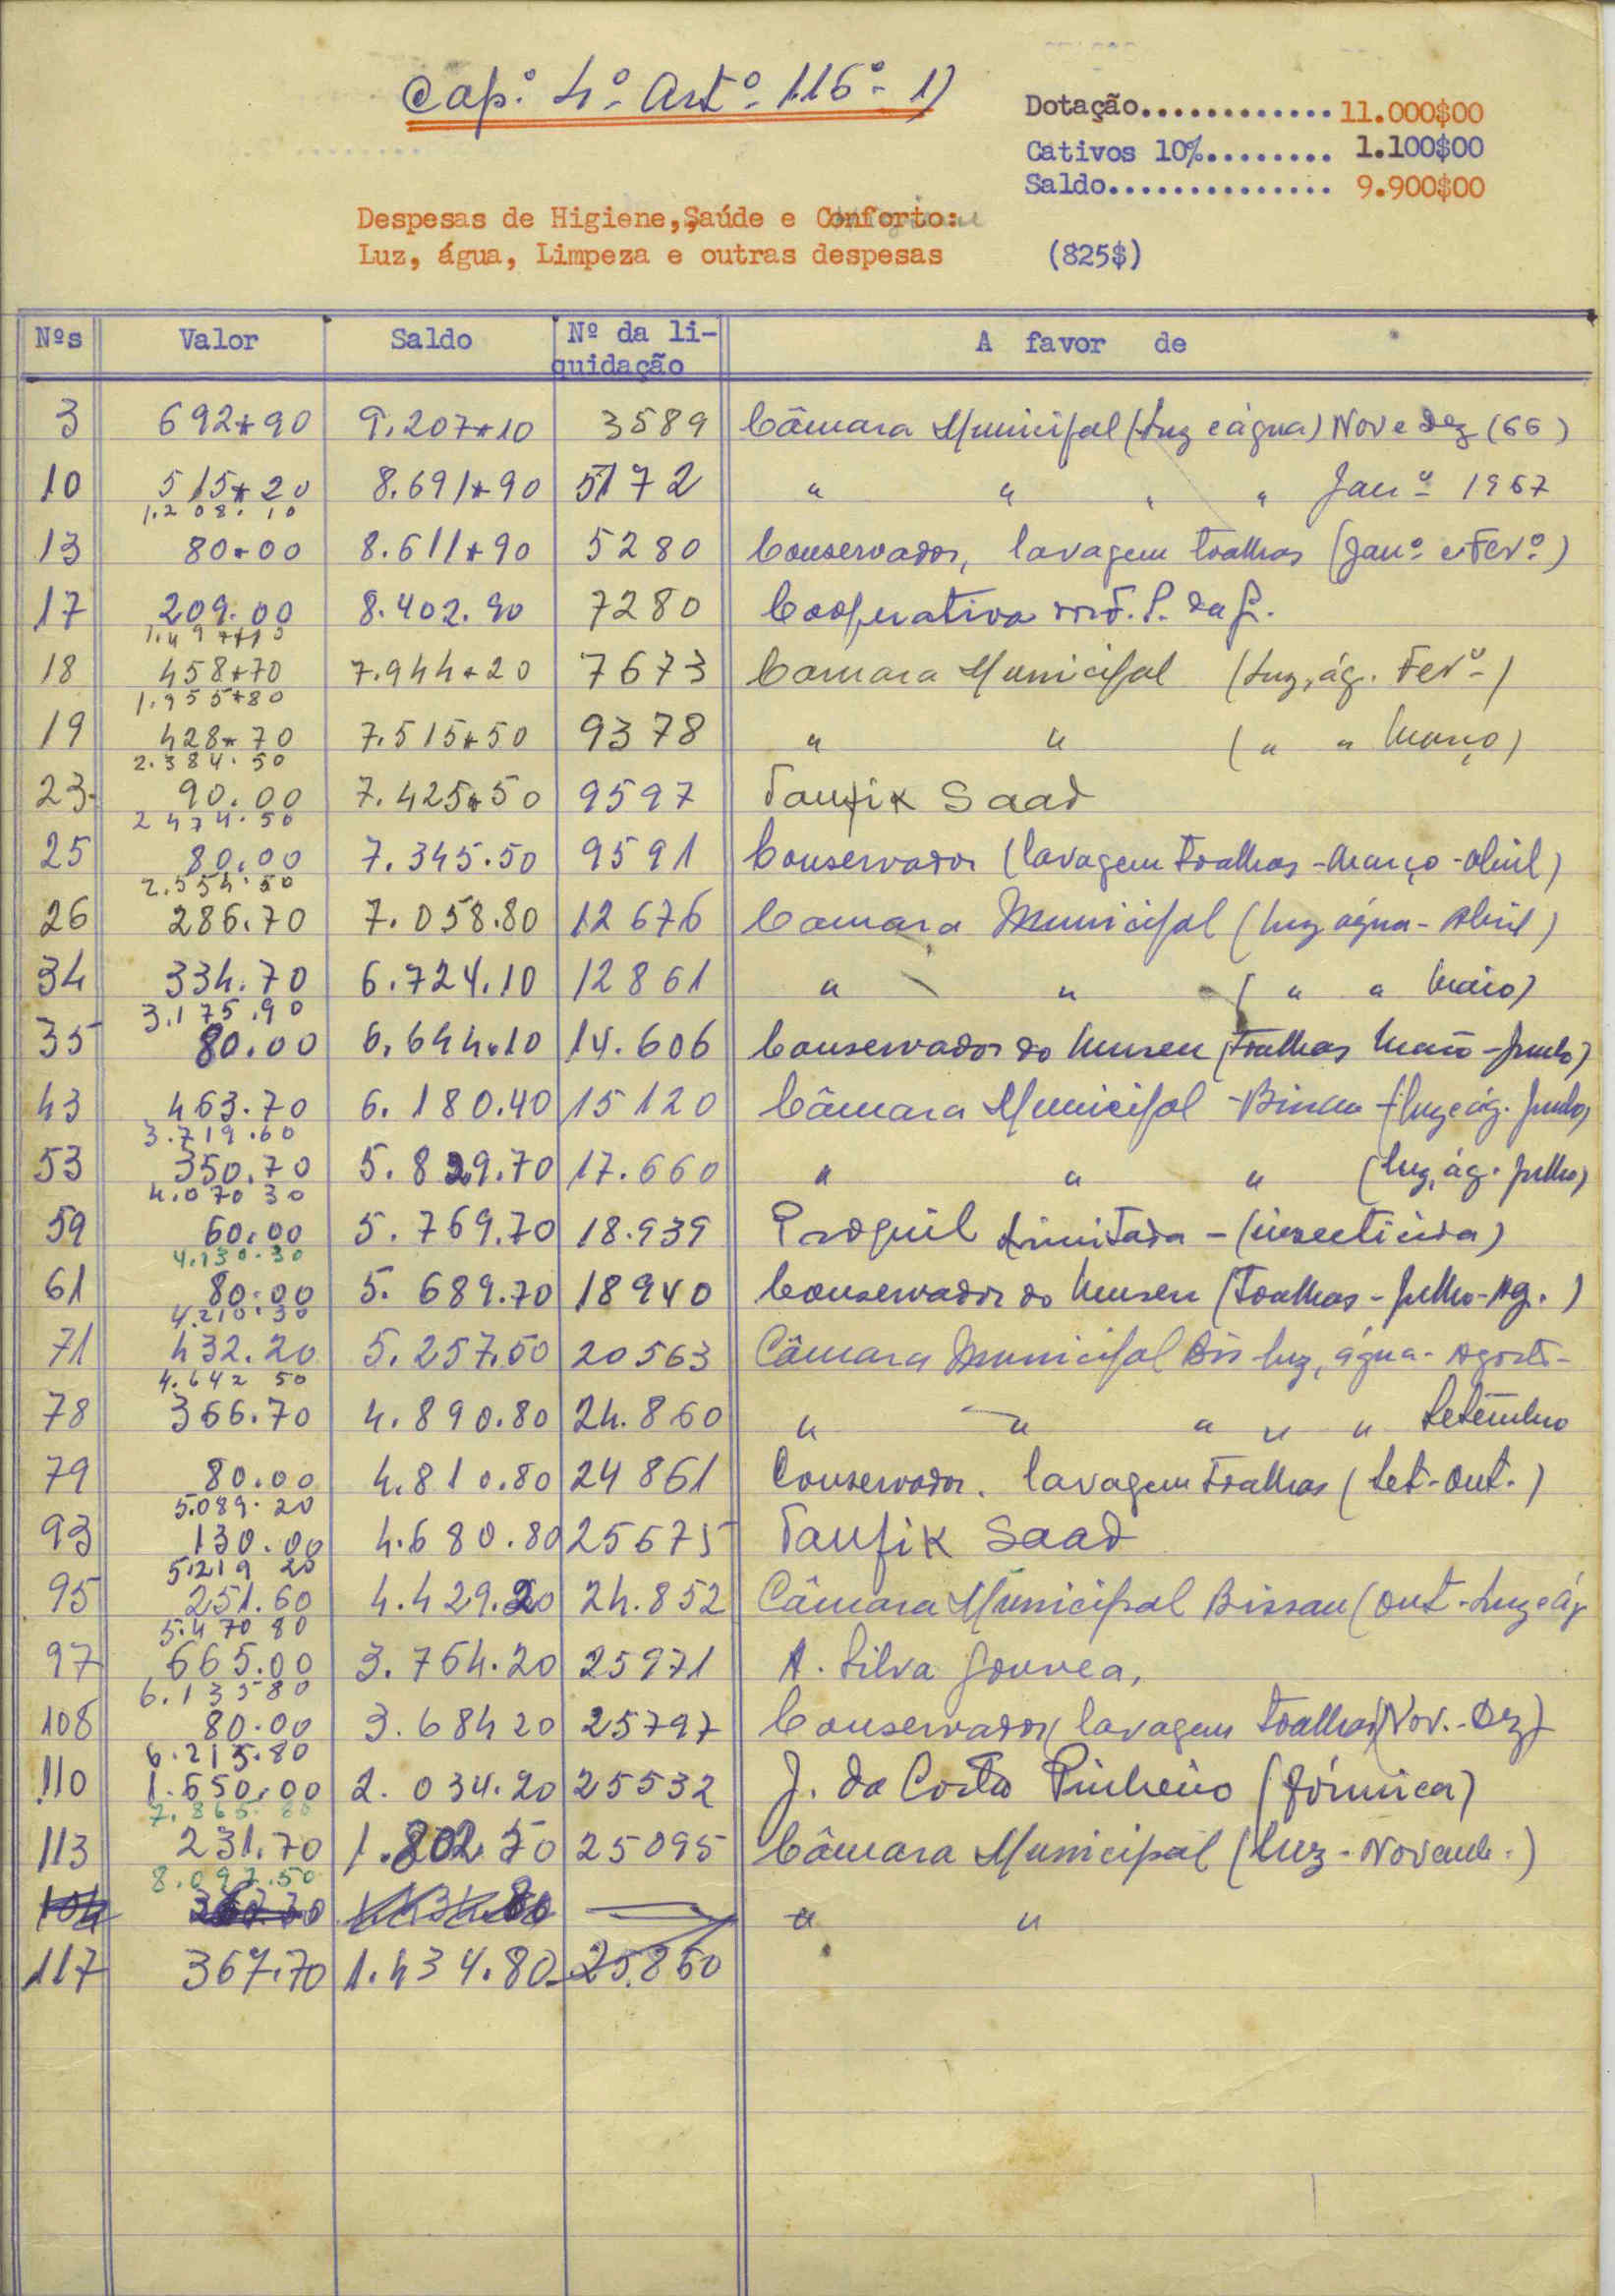 Cap.º 4º Artº 116º - 1)
Dotação............. 11.000$00
Cativos 10%........ 1.100$00
Saldo.............. 9.900$00
Despesas de Higiene, Saúde e Conforto:
Luz, água, Limpeza e outras despesas (825$)
Nºs Valor Saldo Nº da li-quidação A favor de
3 692*90 9.207*10 3589 Câmara Municipal (Luz e água) Nov e Dez (66)
10 515*20 8.691*90 5172 " " " " Janº 1967
1.208.10
13 80*00 8.611*90 5280 Conservador, lavagem toalhas (Janº e Fevº)
17 209.00 8.402.90 7280 Cooperativa
1.497*10
18 458*70 7.944*20 7673 Camara Municipal (Luz, ág. Fevº)
1.955*80
19 428*70 7.515*50 9378 " " ( " " Março)
2.384.50
23 90.00 7.425*50 9597 Taufik Saad
2474.50
25 80.00 7.345.50 9591 Conservador (lavagem toalhas - Março - Abril)
2.554.50
26 286.70 7.058.80 12676 Camara Municipal (Luz água - Abril)
34 334.70 6.724.10 12861 " " ( " " Maio)
3.175.90
35 80.00 6.644.10 14.606 Conservador do Museu (Toalhas Maio - Junho)
43 463.70 6.180.40 15120 Câmara Municipal - Bissau - (luz e ág. Junho)
3.719.60
53 350.70 5.829.70 17.660 " " " (luz, ág. Julho)
4.070 30
59 60.00 5.769.70 18.939 Proquil Limitada - (insecticida)
4.130.30
61 80.00 5.689.70 18940 Conservador do Museu (Toalhas - Julho - Ag.)
4.210.30
71 432.20 5.257.50 20563 Câmara Municipal Bis luz, água - Agosto -
4.642 50
78 366.70 4.890.80 24.860 " " " " " Setembro
79 80.00 4.810.80 24861 Conservador. lavagem Toalhas (Set - Out.)
5.089.20
93 130.00 4.680.80 25675 Taufik Saad
5.219 20
95 251.60 4.429.20 24.852 Câmara Municipal Bissau (Out - Luz e ág
5.470 80
97 665.00 3.764.20 25971 A. Silva Gouvea,
6.135 80
108 80.00 3.684 20 25797 Conservador (lavagem toalhas) (Nov. - Dez)
6.215.80
110 1.650.00 2.034.20 25532 J. da Costa Pinheiro (fórmica)
7.865.80
113 231.70 1.802.50 25095 Câmara Municipal (Luz - Novemb.)
8.097.50
104 367.70 1.434.80 " "
117 367.70 1.434.80 25.850